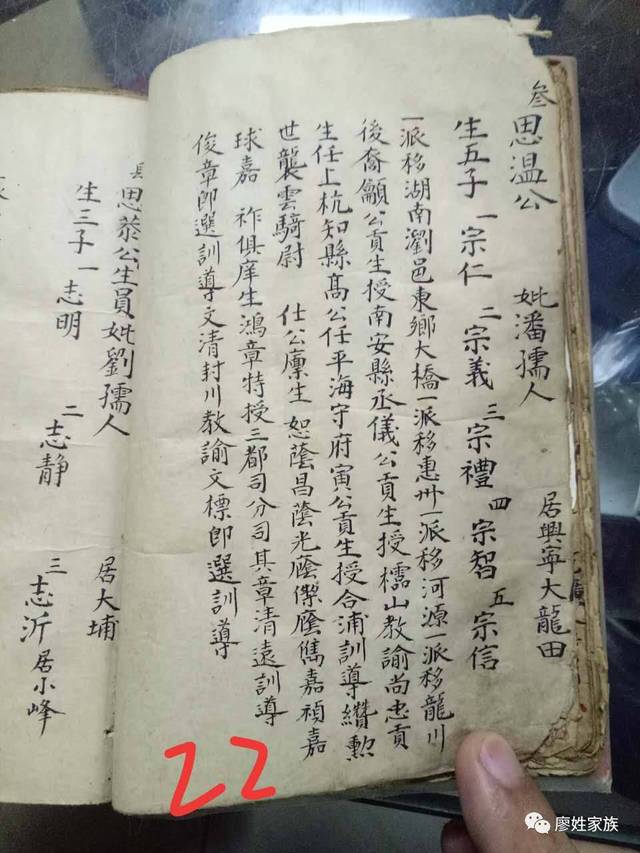 叁 思温公 妣潘孺人 居興寧大龍田
生五子 一宗仁 二宗義 三宗禮 四宗智 五宗信
一派移湖南瀏邑東鄉大橋一派移惠州一派移河源一派移龍川
後裔籲公貢生授南安縣丞儀公貢生授檽山教諭尚忠貢
生任上杭知縣髙公任平海守府寅公貢生授合浦訓導纘勲
世襲雲騎尉 仕公廩生 恕蔭昌蔭光蔭傑蔭雋嘉禎嘉
球嘉祚俱庠生鴻章特授三都司分司其章清遠訓導
俊章即選訓導文清封川教諭文標即選訓導
思恭公生員妣劉孺人 居大埔
生三子 一志明 二志靜 三志沂居小峰
22
廖姓家族